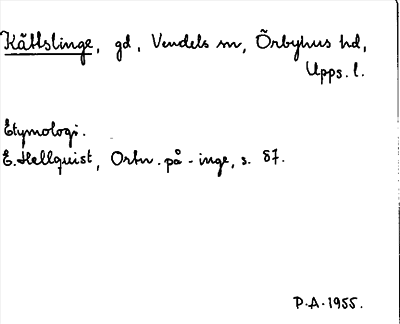 Källslinge, gd, Vendels sn, Örbyhus hd,
Upps. l.
Etymologi.
E. Hellquist, Ortn. på -inge, s. 87.
P.A. 1955.